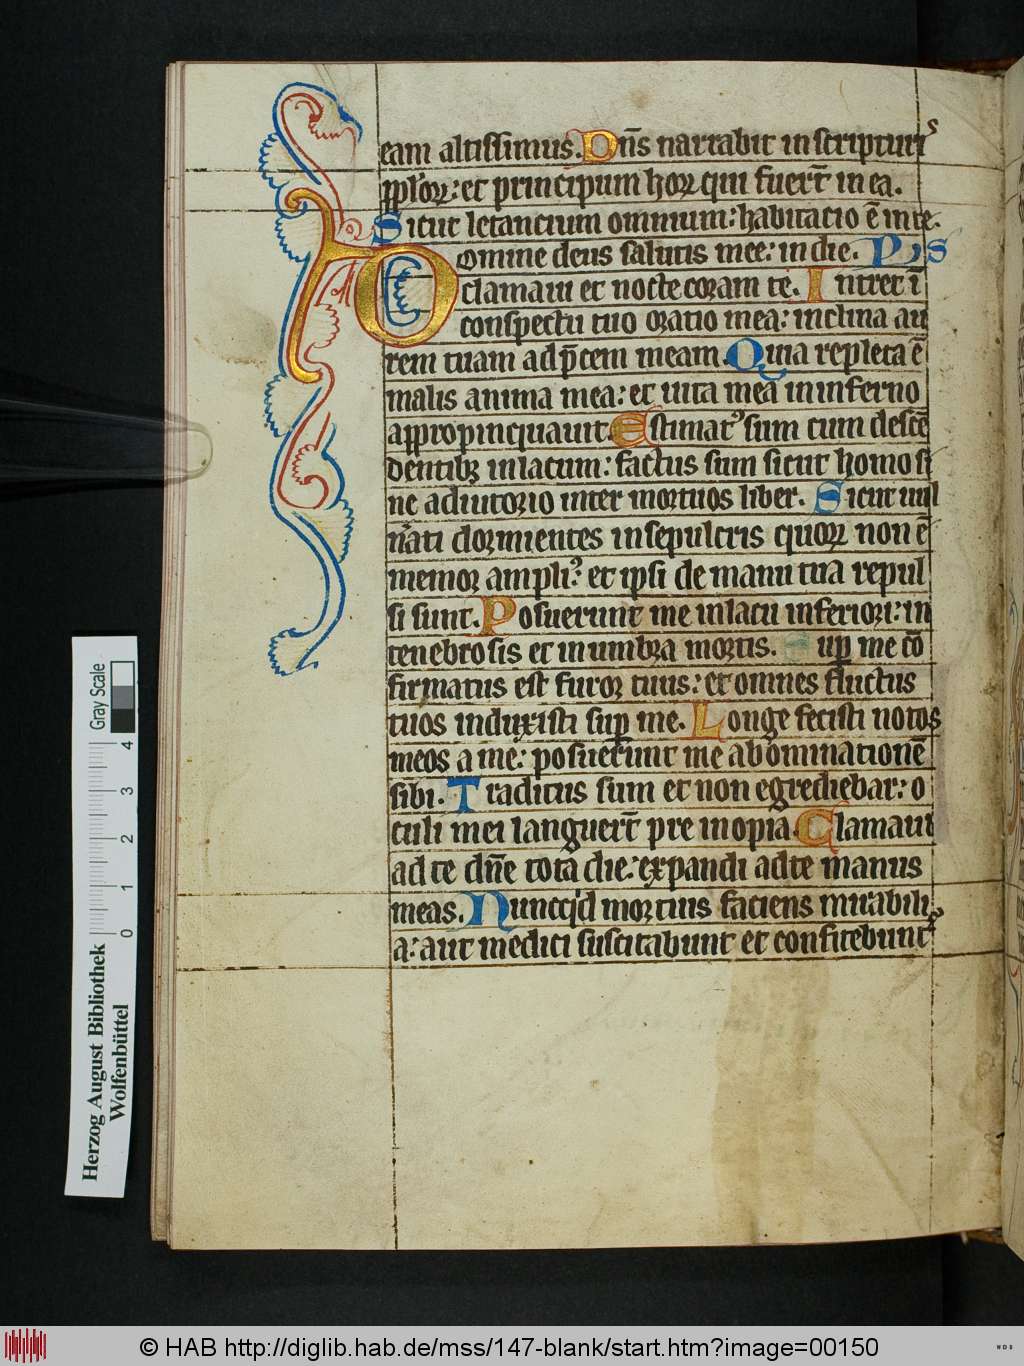 eam altissimus. Dn̄s narrabit in scripturis
pplor̄ꝝ: et principum hoꝝ qui fuer̄t in ea.
Sicut letancium omnium: habitacio ē in te.
Domine deus salutis mee: in die. Ps
clamaui et nocte coram te. Intret ī
conspectu tuo oratio mea: inclina au
rem tuam ad p̄cem meam. Quia repleta ē
malis anima mea: et uita mea in inferno
appropinquauit. Estimatꝰ sum cum descē
dentibꝫ in lacum: factus sum sicut homo si
ne adiutorio inter mortuos liber. Sicut uul
n̄ati dormientes in sepulcris quoꝝ non ē
memor ampliꝰ: et ipsi de manu tua repul
si sunt. Posuerunt me in lacu inferiori: in
tenebrosis et in umbra mortis. Suꝑ me cō
firmatus est furor tuus: et omnes fluctus
tuos induxisti suꝑ me. Longe fecisti notos
meos a me: posuerunt me abominationē
sibi. Traditus sum et non egrediebar: o
culi mei languer̄t pre inopia. Clamaui
ad te dn̄e tota die: expandi ad te manus
meas. Nuncqid mortuis faciens mirabili
a: aut medici suscitabunt et confitebunt
Gray Scale
0 1 2 3 4
Herzog August Bibliothek
Wolfenbüttel
© HAB http://diglib.hab.de/mss/147-blank/start.htm?image=00150